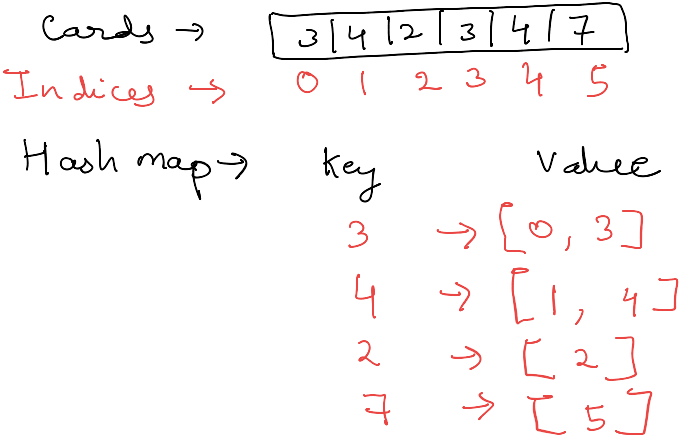 Cards → 3 | 4 | 2 | 3 | 4 | 7
Indices → 0 1 2 3 4 5
Hash map → Key Value
3 → [0, 3]
4 → [1, 4]
2 → [2]
7 → [5]